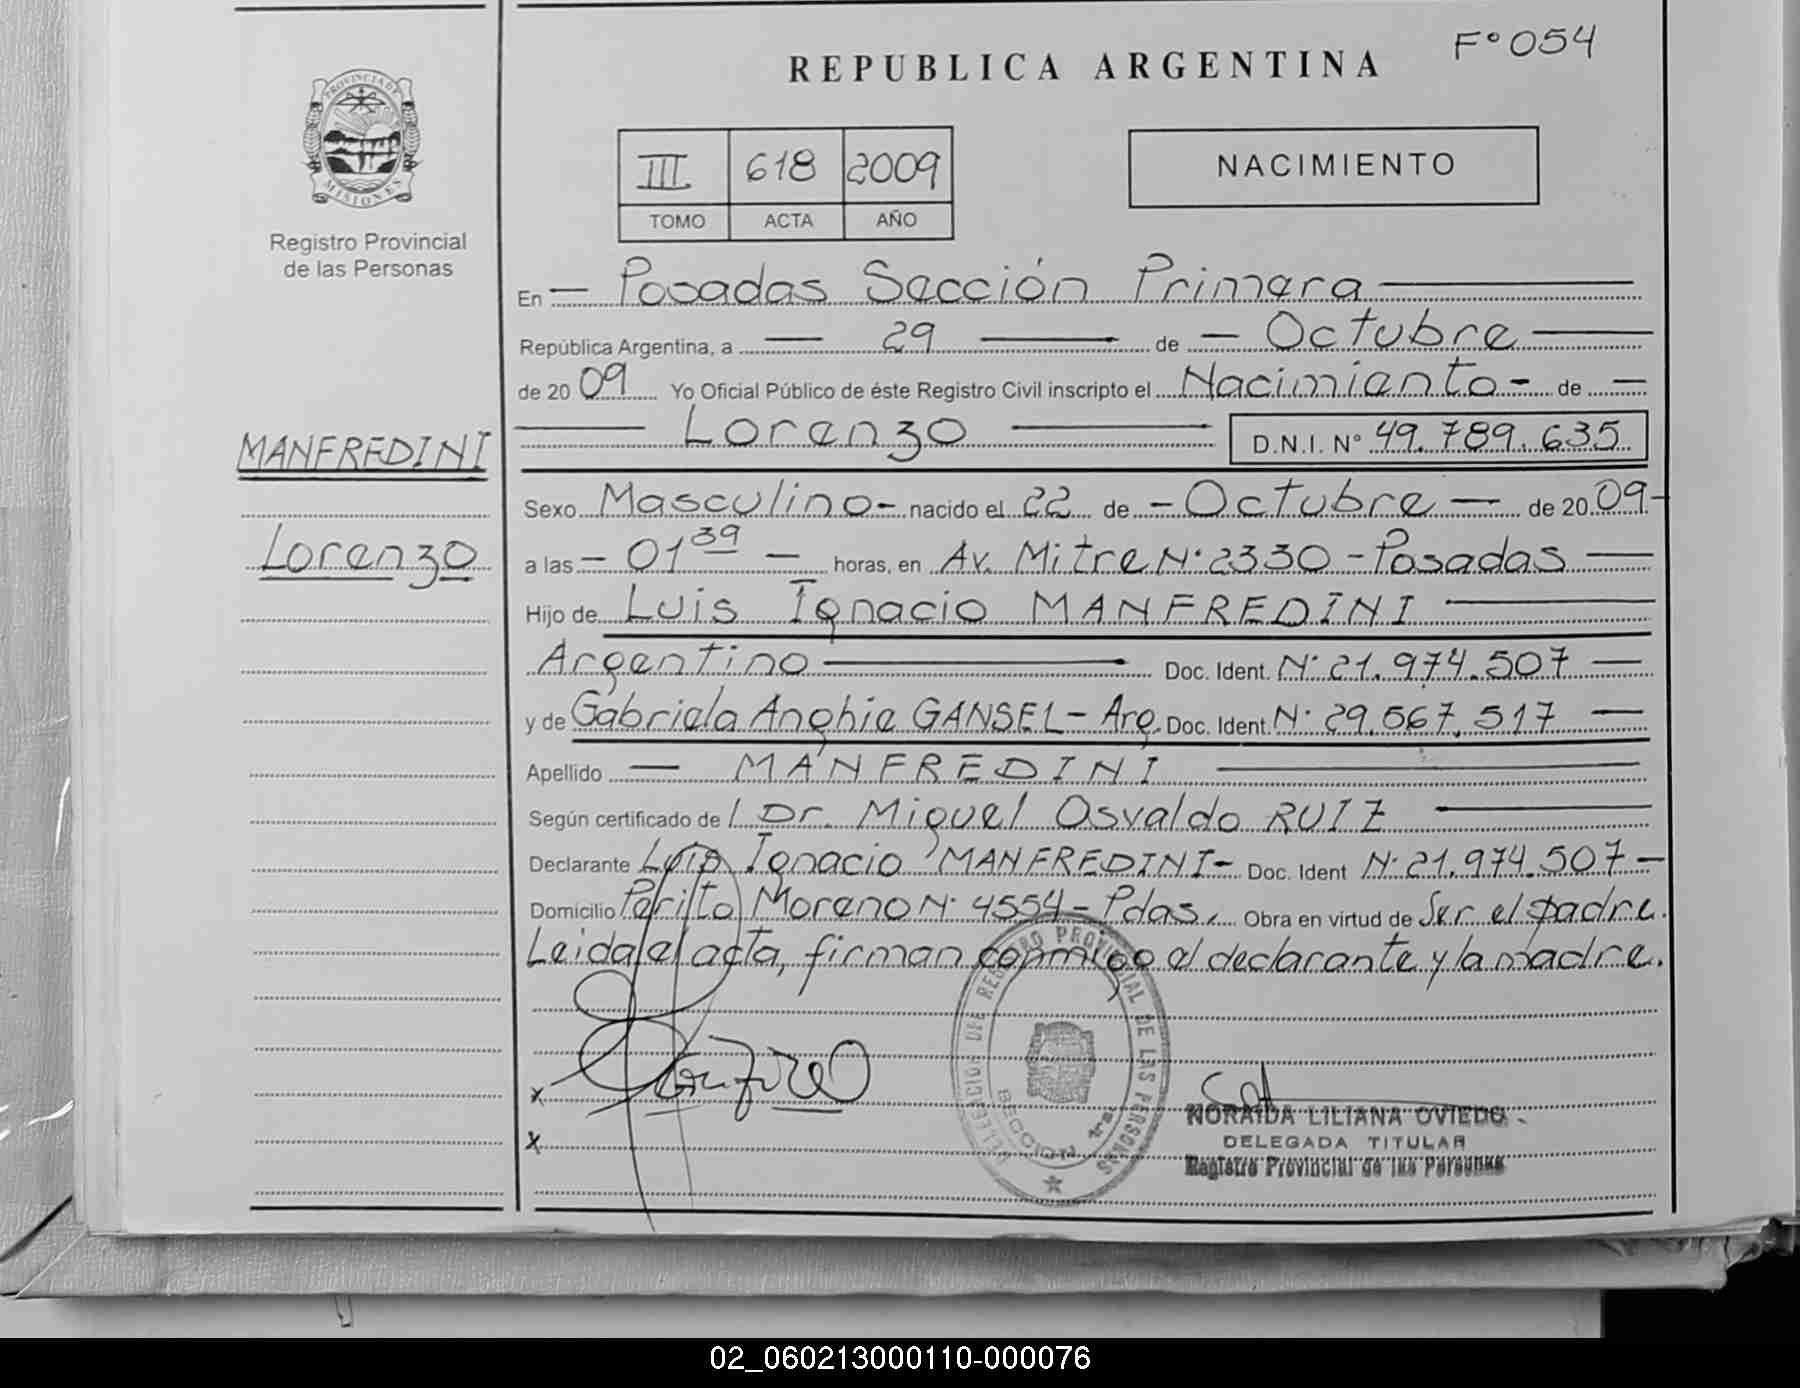 F° 054
REPUBLICA ARGENTINA
PROVINCIA DE
MISIONES
Registro Provincial
de las Personas
III 618 2009
TOMO ACTA AÑO
NACIMIENTO
En — Posadas Sección Primera —
República Argentina, a — 29 — de — Octubre —
de 20 09 Yo Oficial Público de éste Registro Civil inscripto el Nacimiento - de —
— Lorenzo — D.N.I. N° 49.789.635
MANFREDINI
Lorenzo
Sexo Masculino - nacido el 22 de - Octubre — de 20 09 -
a las - 01 39 — horas, en Av. Mitre N° 2330 - Posadas —
Hijo de Luis Ignacio MANFREDINI —
Argentino — Doc. Ident. N° 21.974.507 —
y de Gabriela Anghie GANSEL - Arg. Doc. Ident. N° 29.567.517 —
Apellido — MANFREDINI —
Según certificado de / Dr. Miguel Osvaldo RUIZ —
Declarante Luis Ignacio MANFREDINI - Doc. Ident N° 21.974.507 -
Domicilio Perito Moreno N° 4554 - Pdas. Obra en virtud de Ser el padre.
Leida el acta, firman conmigo el declarante y la madre.
REGISTRO PROVINCIAL DE LAS PERSONAS
SECCION 1ra.
x
x
NORAIDA LILIANA OVIEDO
DELEGADA TITULAR
Registro Provincial de las Personas
02_060213000110-000076